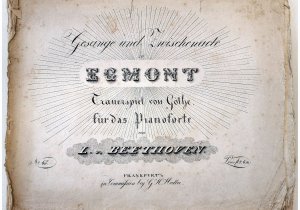 Gesänge und Zwischenacte
EGMONT
Trauerspiel von Göthe,
für das Pianoforte
von
L. v. BEETHOVEN.
FRANKFURT,
in Commission by G. H.